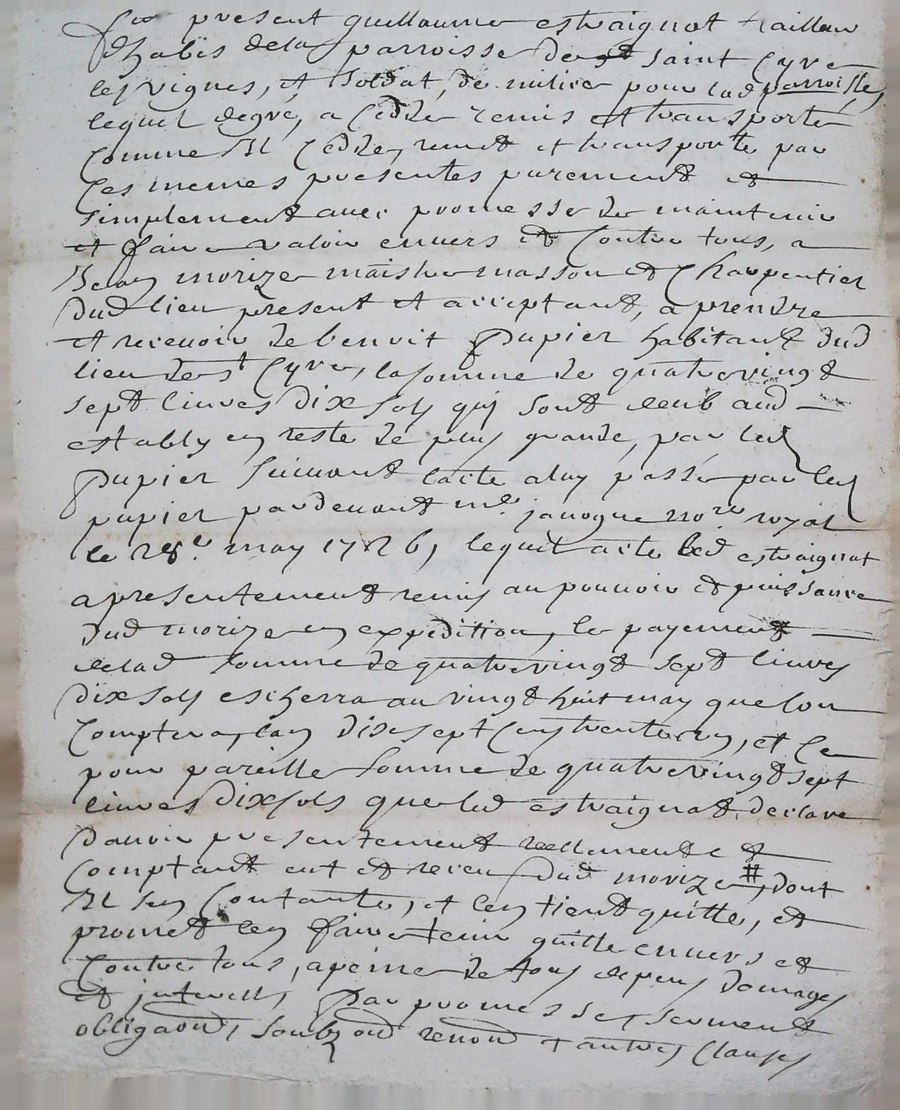 fut present guillaume estraignat tailleur
dhabis de la parroisse de saint Cyre
les vignes, et soldat, de milice pour lad parroisse,
lequel degré, a Cedde remis et transporte
Comme Il Cedde, remet et transporte par
Ces memes presentes purement et
simplement avec promesse de maintenir
et faire valoir envers et Contre tous, a
Jean morize maistre masson et Charpentier
dud lieu present et acceptant, a prendre
et recevoir de benoit papier habitant dud
lieu de st Cyre, la somme de quatrevingt
sept livres dix sols qui sont deub aud
estably en reste de plus grande, par led
papier suivant lacte a luy passé par led
papier pardevant me janogue nore royal
le 28e may 1726, lequel acte led estraignat
a presentement remis au pouvoir et puissance
dud morize en expedition, le payement
de lad somme de quatrevingt sept livres
dix sols escherra au vingt huit may que lon
Comptera, lan dixsept Cens trente, et Ce
pour pareille somme de quatrevingt sept
livres dix sols que led estraignat, declare
davoir presentement reellement et
Comptant eut et receu dud morize #, dont
Il sen Contante, et len tient quitte, et
promet len faire tenir quitte envers et
Contre tous, a peine de tous depens domages
et interests, Par promesse, serment
obligaond, soubzaond renond & autres Clauses